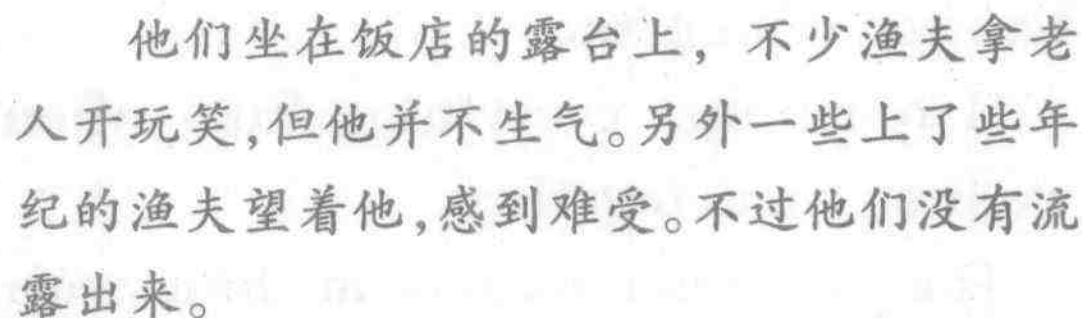 他们坐在饭店的露台上，不少渔夫拿老
人开玩笑，但他并不生气。另外一些上了些年
纪的渔夫望着他，感到难受。不过他们没有流
露出来。